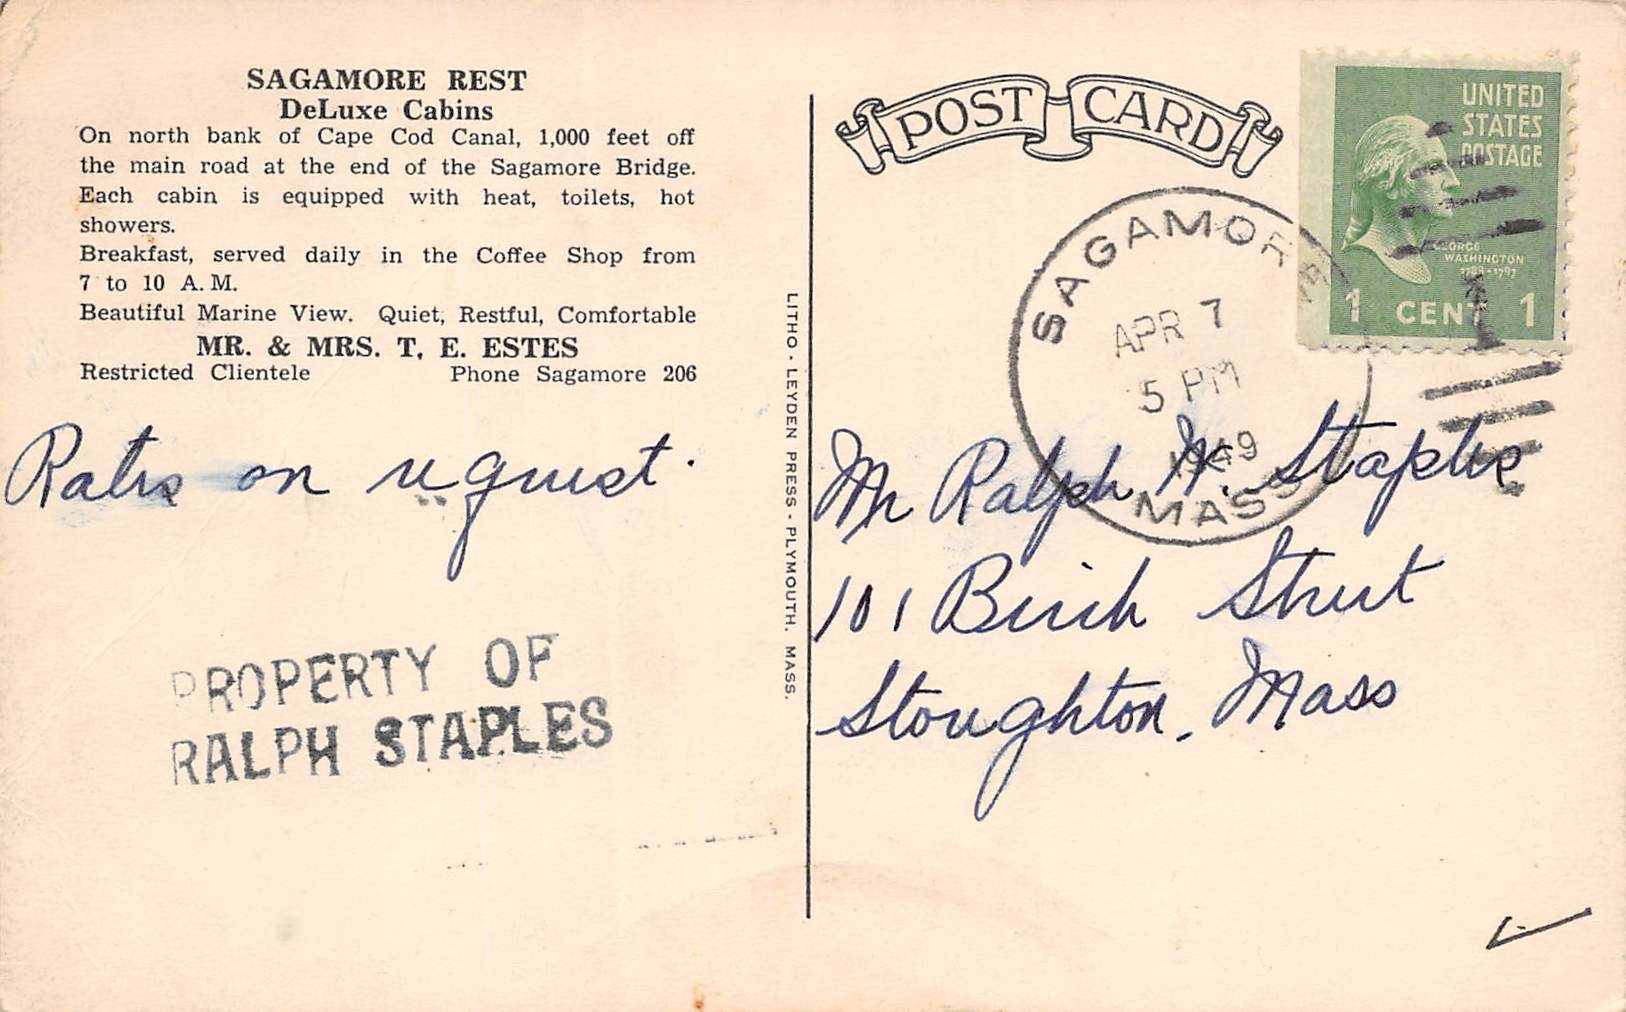 SAGAMORE REST
DeLuxe Cabins
On north bank of Cape Cod Canal, 1,000 feet off
the main road at the end of the Sagamore Bridge.
Each cabin is equipped with heat, toilets, hot
showers.
Breakfast, served daily in the Coffee Shop from
7 to 10 A. M.
Beautiful Marine View. Quiet, Restful, Comfortable
MR. & MRS. T. E. ESTES
Restricted Clientele Phone Sagamore 206
Rates on request.
PROPERTY OF
RALPH STAPLES
LITHO · LEYDEN PRESS · PLYMOUTH, MASS.
POST CARD
UNITED
STATES
POSTAGE
GEORGE
WASHINGTON
1789-1797
1 CENT 1
SAGAMORE
APR 7
5 PM
1949
MASS
1
Mr Ralph H. Staples
101 Birch Street
Stoughton, Mass